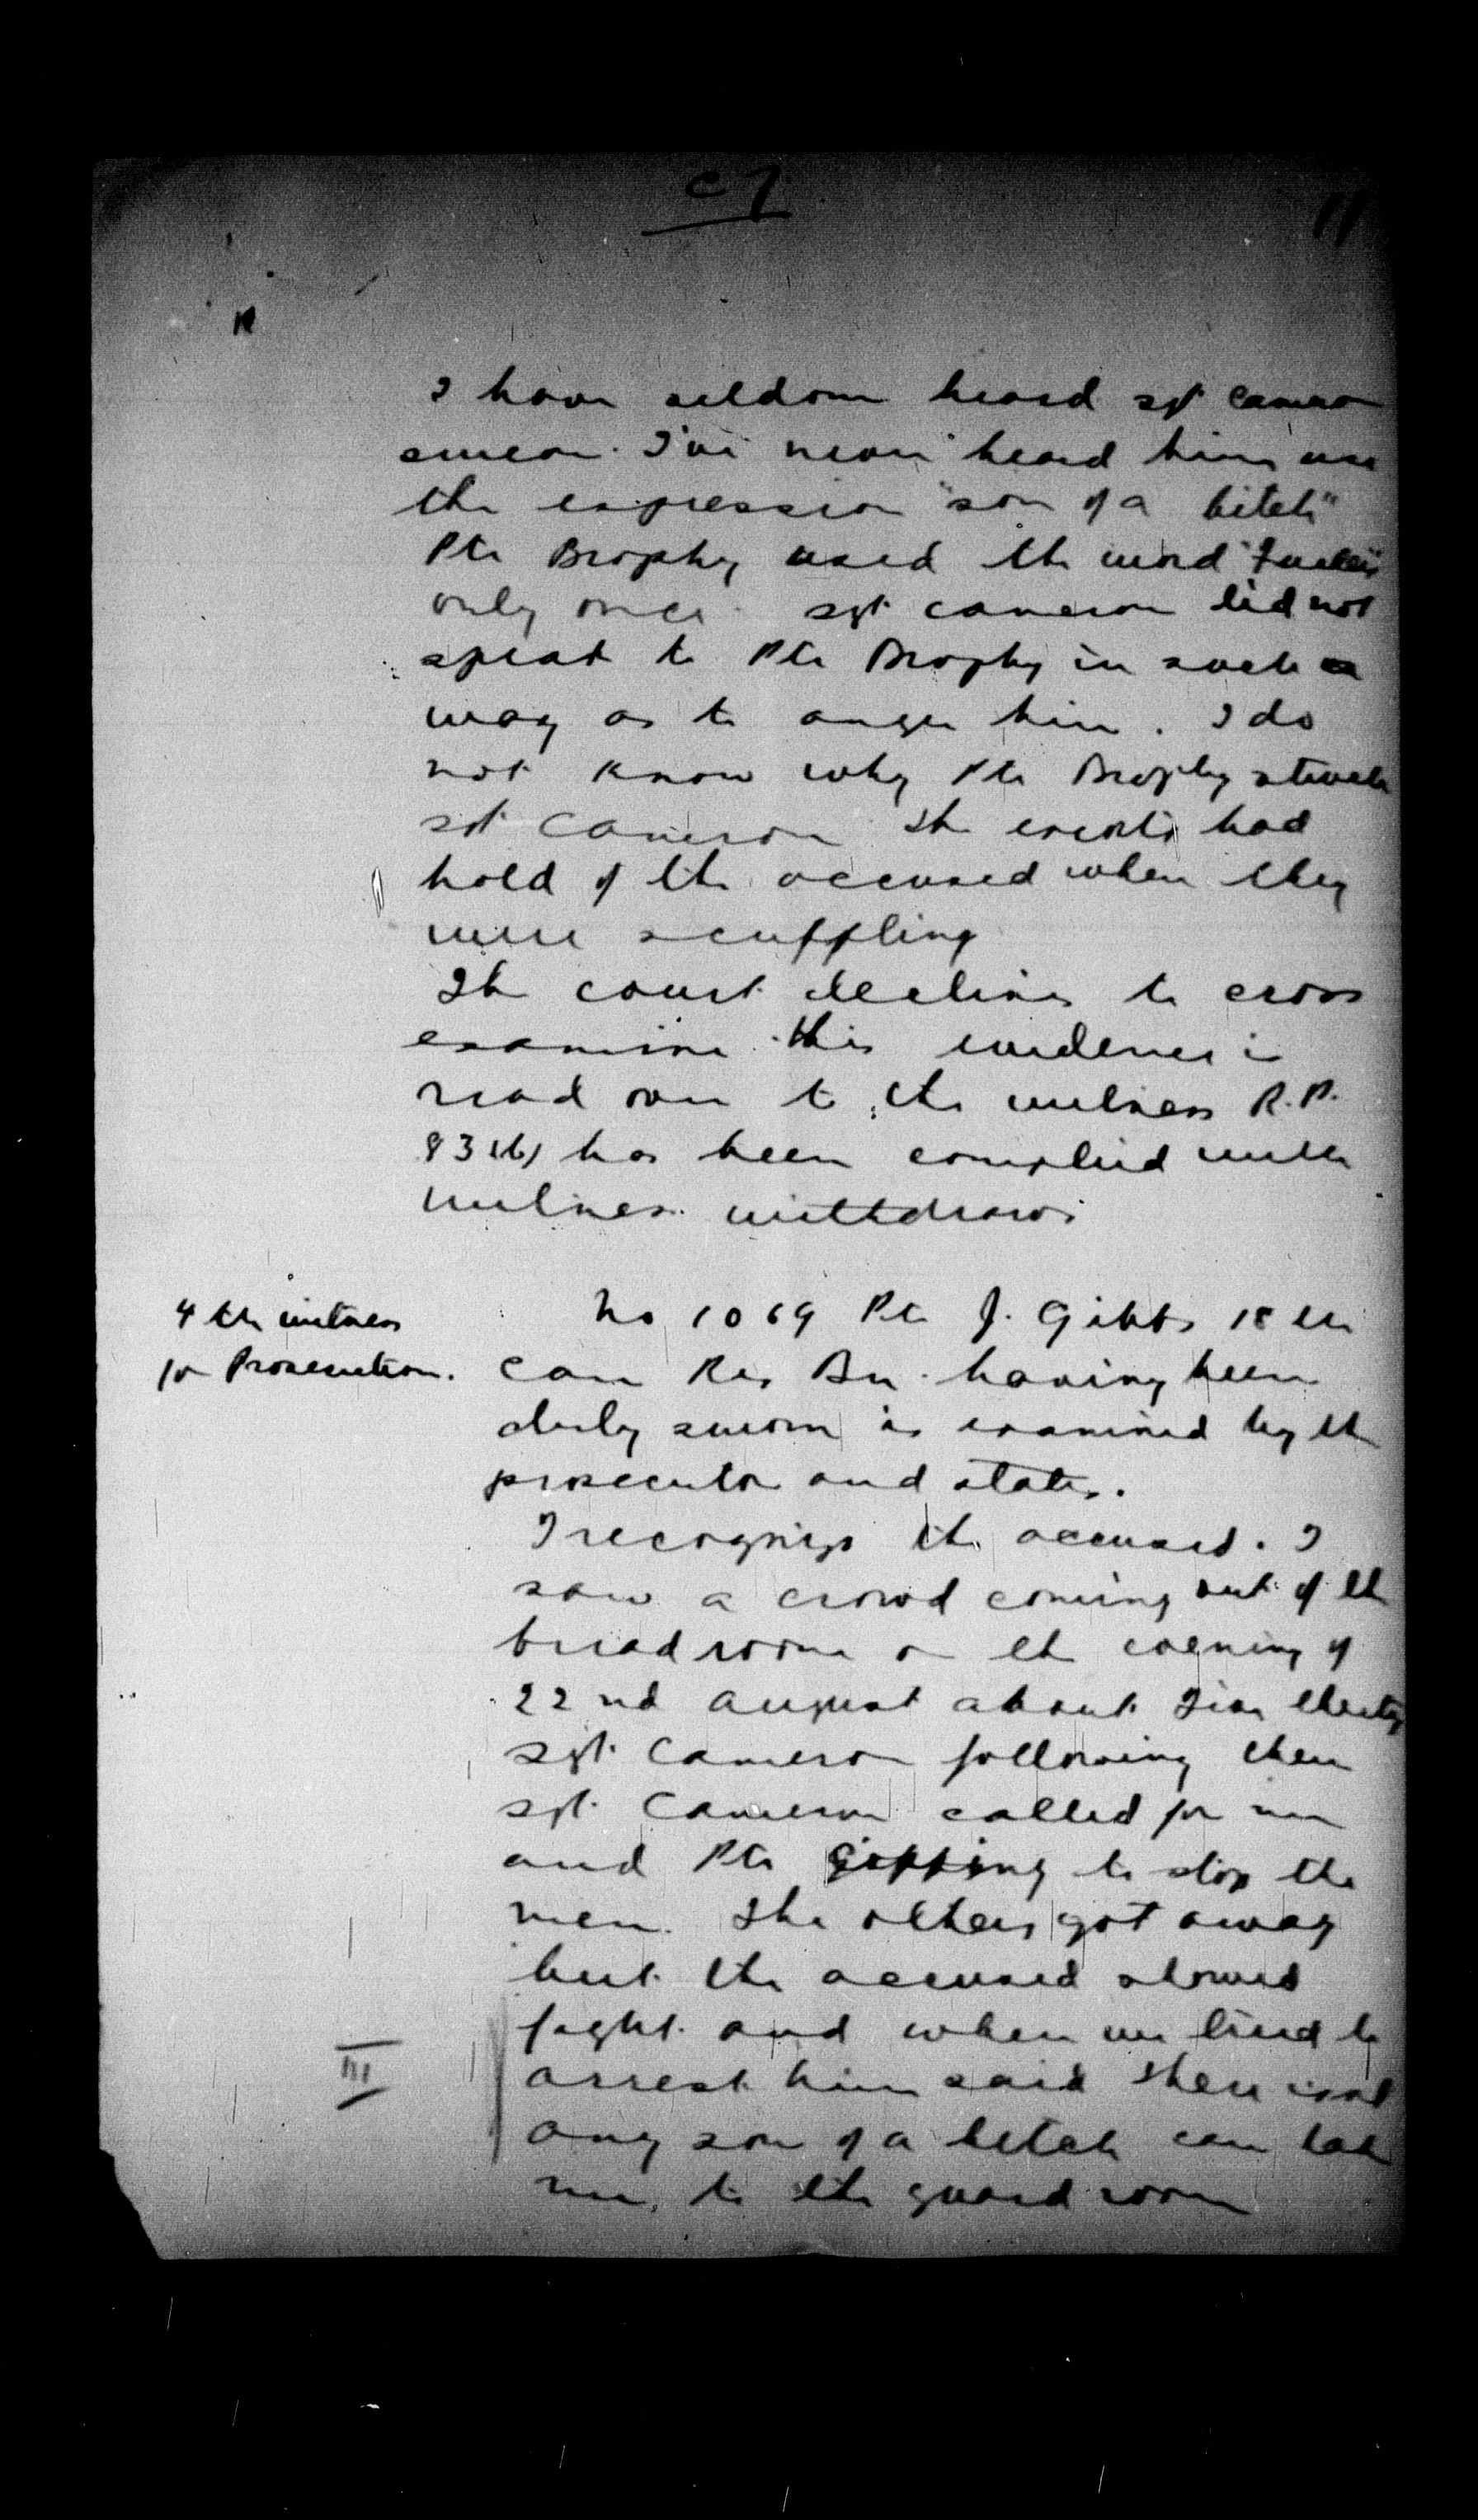 C7
11
I have seldom heard sgt Cameron
swear. I've never heard him use
the expression "son of a bitch"
Pte Brophy used the word
only once. sgt Cameron did not
speak to Pte Brophy in such a
way as to anger him. I do
not know why Pte Brophy struck
sgt Cameron The escorts had
hold of the accused when they
were scuffling
The court declines to cross
examine this evidence is
read over to the witness R.P.
83(b) has been complied with
witness withdraws
4th witness
for Prosecution.
No 1069 Pte J. Gibbs 18th
Can Res Bn. having been
duly sworn is examined by the
prosecutor and states.
I recognize the accused. I
saw a crowd coming out of the
bread room on the evening of
22nd August about five thirty
sgt Cameron following them
sgt. Cameron called for me
and Pte Gipping to stop the
men. The others got away
but the accused showed
fight and when we tried to
III
arrest him said there isnt
any son of a bitch can take
me to the guard room